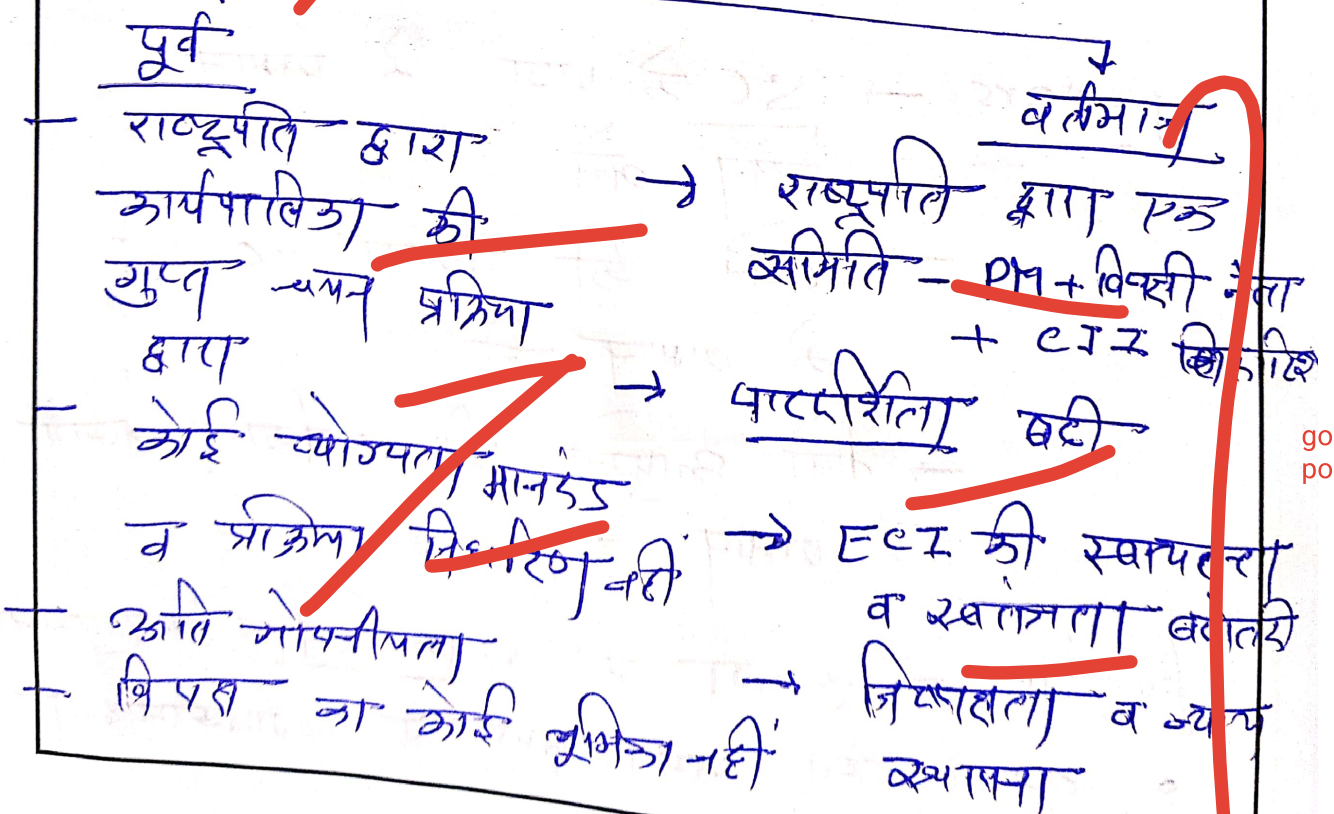 पूर्व
- राष्ट्रपति द्वारा
कार्यपालिका की
गुप्त चयन प्रक्रिया
द्वारा
- कोई योग्यता मानदंड
व प्रक्रिया निर्धारण नहीं
- अति गोपनीयता
- विपक्ष का कोई भूमिका नहीं
वर्तमान
→ राष्ट्रपति द्वारा एक
समिति - PM + विपक्षी नेता
+ CJI
→ पारदर्शिता बढ़ी
→ ECI की स्वायत्तता
व स्वतंत्रता बढ़ोतरी
→ निष्पक्षता व न्याय
स्थापना
go
po